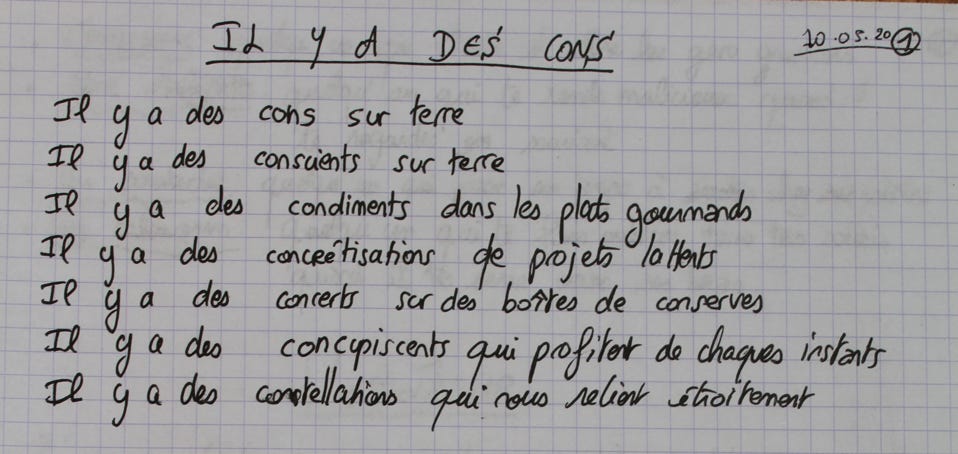 IL Y A DES CONS
10.05.20 1
Il y a des cons sur terre
Il y a des conscients sur terre
Il y a des condiments dans les plats gourmands
Il y a des concrétisations de projets lattents
Il y a des concerts sur des boîtes de conserves
Il y a des concupiscents qui profitent de chaques instants
Il y a des constellations qui nous relient étroitement